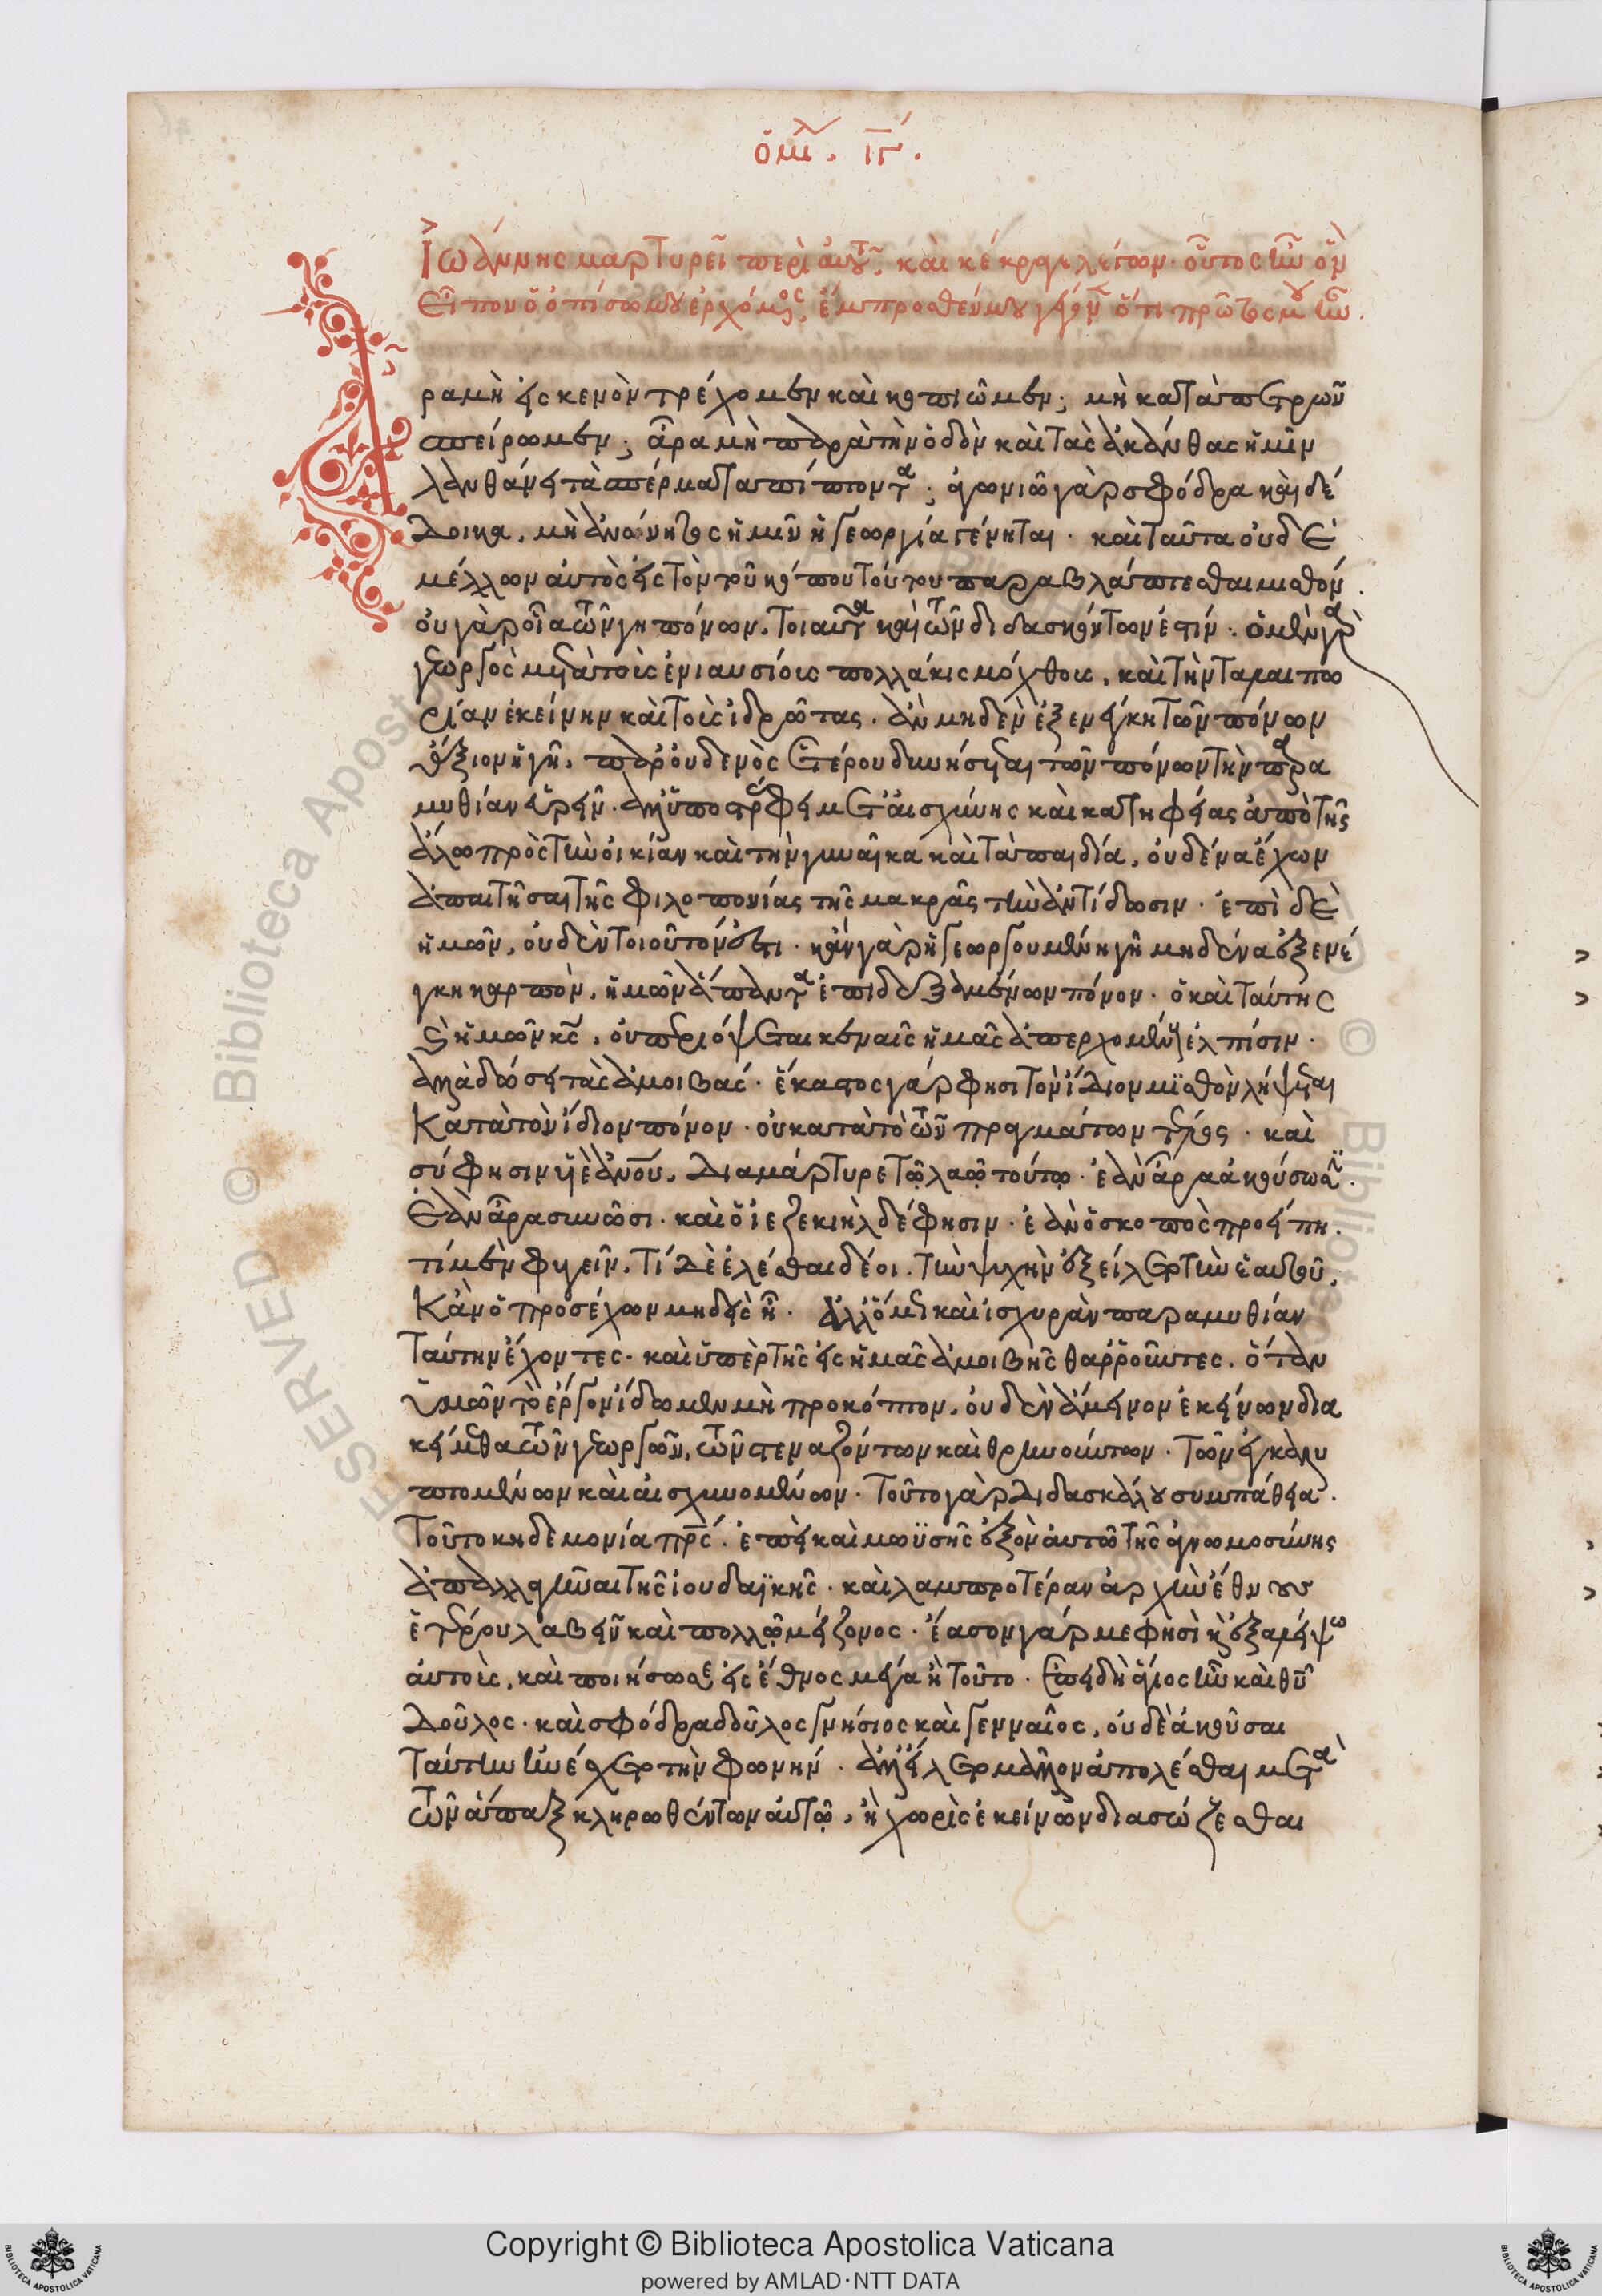 ὁμιλ. ιγ΄.
Ἰωάννης μαρτυρεῖ περὶ αὐτοῦ, καὶ κέκραγε λέγων· οὗτος ἦν ὃν
εἶπον ὁ ὀπίσω μου ἐρχόμενος, ἔμπροσθέν μου γέγονεν ὅτι πρῶτός μου ἦν.
Ἆ
ρα μὴ εἰς κενὸν τρέχομεν καὶ κοπιῶμεν; μὴ κατὰ πετρῶν
σπείρομεν; ἆρα μὴ παρὰ τὴν ὁδὸν καὶ τὰς ἀκάνθας ἡμῖν
λανθάνει τὰ σπέρματα πίπτοντα; ἀγωνιῶ γὰρ σφόδρα καὶ δέ
δοικα, μὴ ἀνόνητος ἡμῖν ἡ γεωργία γένηται· καὶ ταῦτα οὐδὲ
μέλλων αὐτὸς εἰς τὸν τοῦ κόπου τούτου παραβλάπτεσθαι μισθόν.
οὐ γὰρ οἷα τῶν γηπόνων, τοιαῦτα καὶ τῶν διδασκόντων ἐστίν· ὁ μὲν γὰρ
γεωργὸς μετὰ τοὺς ἐνιαυσίους πολλάκις μόχθους, καὶ τὴν ταλαιπω
ρίαν ἐκείνην καὶ τοὺς ἱδρῶτας, ἂν μηδὲν ἐξενέγκῃ τῶν πόνων
ἄξιον ἡ γῆ, παρ' οὐδενὸς ἑτέρου δυνήσεται τῶν πόνων τὴν παρα
μυθίαν εὑρεῖν· ἀλλ' ὑποστρέφει μετ' αἰσχύνης καὶ κατηφείας ἀπὸ τῆς
ἅλω πρὸς τὴν οἰκίαν καὶ τὴν γυναῖκα καὶ τὰ παιδία, οὐδένα ἔχων
ἀπαιτῆσαι τῆς φιλοπονίας τῆς μακρᾶς τὴν ἀντίδοσιν· ἐπὶ δὲ
ἡμῶν, οὐδὲν τοιοῦτον ἔσται· κἂν γὰρ ἡ γεωργουμένη γῆ μηδένα ἐξενέ
γκῃ καρπόν, ἡμῶν ἅπαντα ἐπιδειξαμένων πόνον· ὁ καὶ ταύτης
καὶ ἡμῶν κύριος, οὐ περιόψεται κεναῖς ἡμᾶς ἀπερχομένους ἐλπίσιν·
ἀλλὰ δώσει τὰς ἀμοιβάς· ἕκαστος γάρ φησι τὸν ἴδιον μισθὸν λήψεται
κατὰ τὸν ἴδιον πόνον· οὐ κατὰ τὸ τῶν πραγμάτων τέλος· καὶ
σύ φησιν υἱὲ ἀνθρώπου, διαμάρτυρε τῷ λαῷ τούτῳ· ἐὰν ἄρα ἀκούσωσιν.
ἐὰν ἄρα συνῶσι· καὶ ὁ ἰεζεκιὴλ δέ φησιν· ἐὰν ὁ σκοπὸς προείπῃ.
τί μὲν φυγεῖν, τί δὲ ἑλέσθαι δέοι, τὴν ψυχὴν ἐξείλετο τὴν ἑαυτοῦ,
κἂν ὁ προσέχων μηδεὶς ᾖ. ἀλλ' ὅμως καὶ ἰσχυρὰν παραμυθίαν
ταύτην ἔχοντες· καὶ ὑπὲρ τῆς εἰς ἡμᾶς ἀμοιβῆς θαρροῦντες, ὅταν
ὑμῶν τὸ ἔργον ἴδωμεν μὴ προκόπτον, οὐδὲν ἄμεινον ἐκείνων δια
κείμεθα τῶν γεωργῶν, τῶν στεναζόντων καὶ θρηνούντων· τῶν ἐγκαλυ
πτομένων καὶ αἰσχυνομένων· τοῦτο γὰρ διδασκάλου συμπάθεια.
τοῦτο κηδεμονία πατρός. ἐπεὶ καὶ μωϋσῆς ἐξὸν αὐτῷ τῆς ἀγνωμοσύνης
ἀπαλλαγῆναι τῆς ἰουδαϊκῆς· καὶ λαμπροτέραν ἀρχὴν ἔθνους
ἑτέρου λαβεῖν καὶ πολλῷ μείζονος· ἔασον γάρ με φησὶ καὶ ἐξαλείψω
αὐτούς, καὶ ποιήσω σε εἰς ἔθνος μέγα ἢ τοῦτο· ἐπειδὴ ἅγιος ἦν καὶ θεοῦ
δοῦλος· καὶ σφόδρα δοῦλος γνήσιος καὶ γενναῖος, οὐδὲ ἀκοῦσαι
ταύτην ἠνέσχετο τὴν φωνήν· ἀλλ' εἵλετο μᾶλλον ἀπολέσθαι μετὰ
τῶν ἅπαξ κληρωθέντων αὐτῷ, ἢ χωρὶς ἐκείνων διασώζεσθαι
Copyright © Biblioteca Apostolica Vaticana
powered by AMLAD·NTT DATA